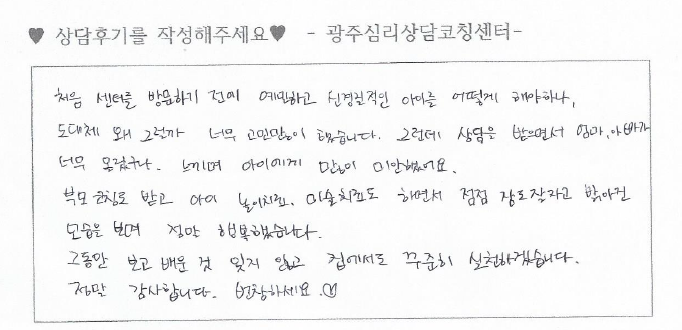 ♥ 상담후기를 작성해주세요♥ - 광주심리상담코칭센터-
처음 센터를 방문하기 전에 예민하고 신경질적인 아이를 어떻게 해야하나,
도대체 왜 그런까 너무 고민많이 했습니다. 그런데 상담을 받으면서 엄마,아빠가
너무 몰랐구나. 느끼며 아이에게 많이 미안했어요.
부모 코칭도 받고 아이 놀이치료. 미술치료도 하면서 점점 장도작자고 밝아진
모습을 보며 정말 행복했습니다.
그동안 보고 배운 것 잊지 않고 집에서도 꾸준히 실천하겠습니다.
정말 감사합니다. 번창하세요.♡